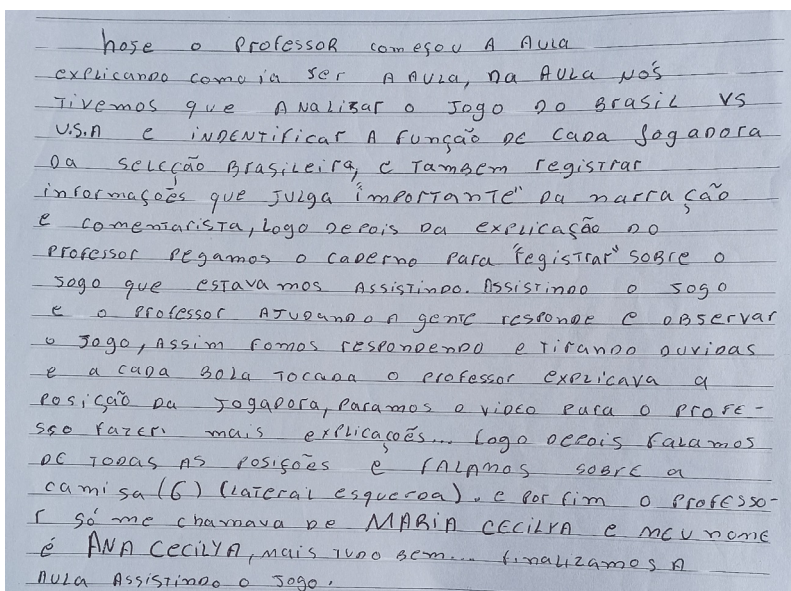 hoje o professor começou A Aula
explicando como ia ser A AULA, na AULA NÓS
Tivemos que ANALISAR o Jogo DO Brasil VS
U.S.A e INDENTIFICAR A função DE CADA Jogadora
DA SELECÇÃO Brasileira, e Também registrar
informações que JULGA "imporTanTe" DA narração
e comentarista, Logo Depois DA explicação DO
professor pegamos o caderno para "registrar" sobre o
Jogo que estavamos Assistindo. Assistindo o Jogo
e o professor AJUDANDO A gente responde e observar
o Jogo, Assim fomos respondendo e tirando duvidas
e a cada Bola Tocada o professor explicava a
posição da Jogadora, paramos o video para o profe-
sso fazer. mais explicações... Logo Depois falamos
DE TODAS AS posições e FALAMOS sobre a
camisa (6) (Lateral esquerda). e por fim o professo-
r só me chamava de MARIA CECILYA e meu nome
é ANA CECILYA, mais TUDO Bem... finalizamos A
AULA Assistindo o Jogo.